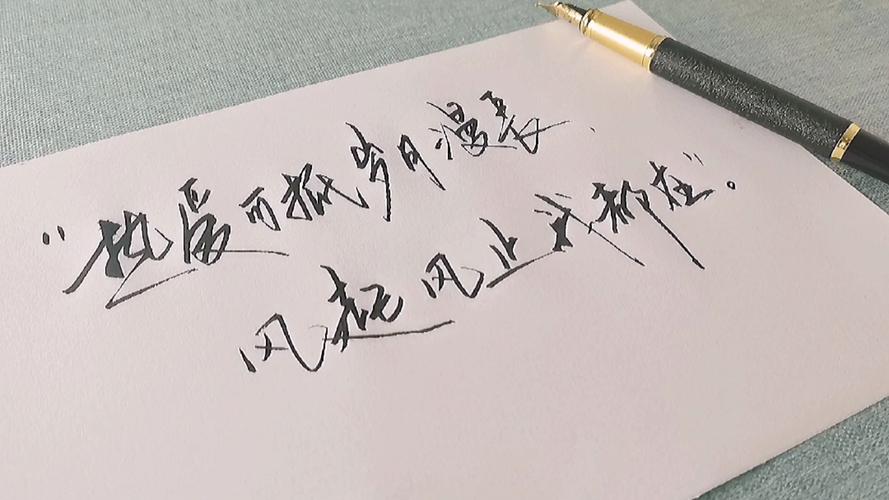 “热爱可抵岁月漫长，
风起风止我都在”。